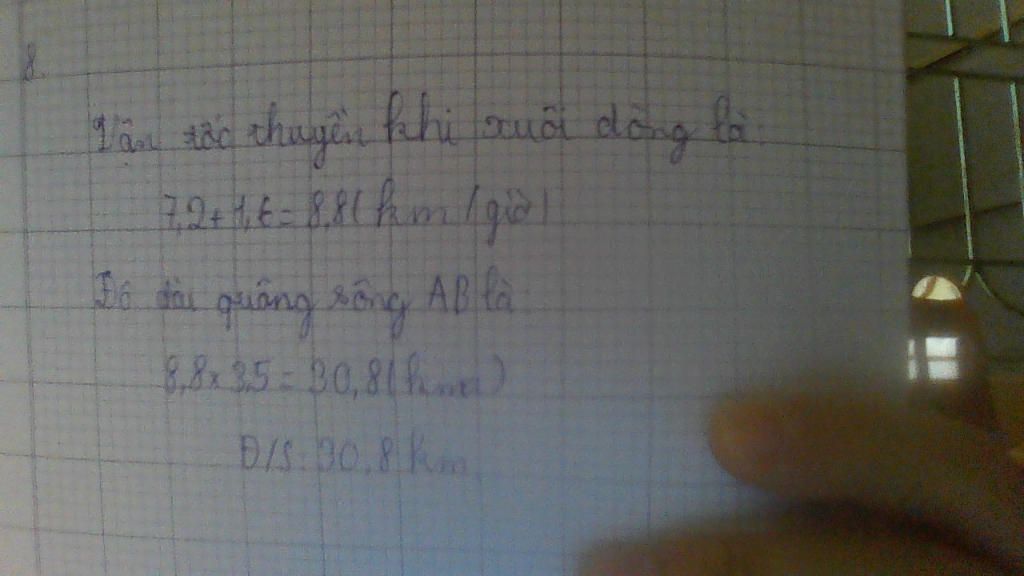 8.
Vận tốc thuyền khi xuôi dòng là:
7,2+1,6=8,8(km/giờ)
Độ dài quãng sông AB là:
8,8×3,5=30,8(km)
Đ/S: 30,8 km